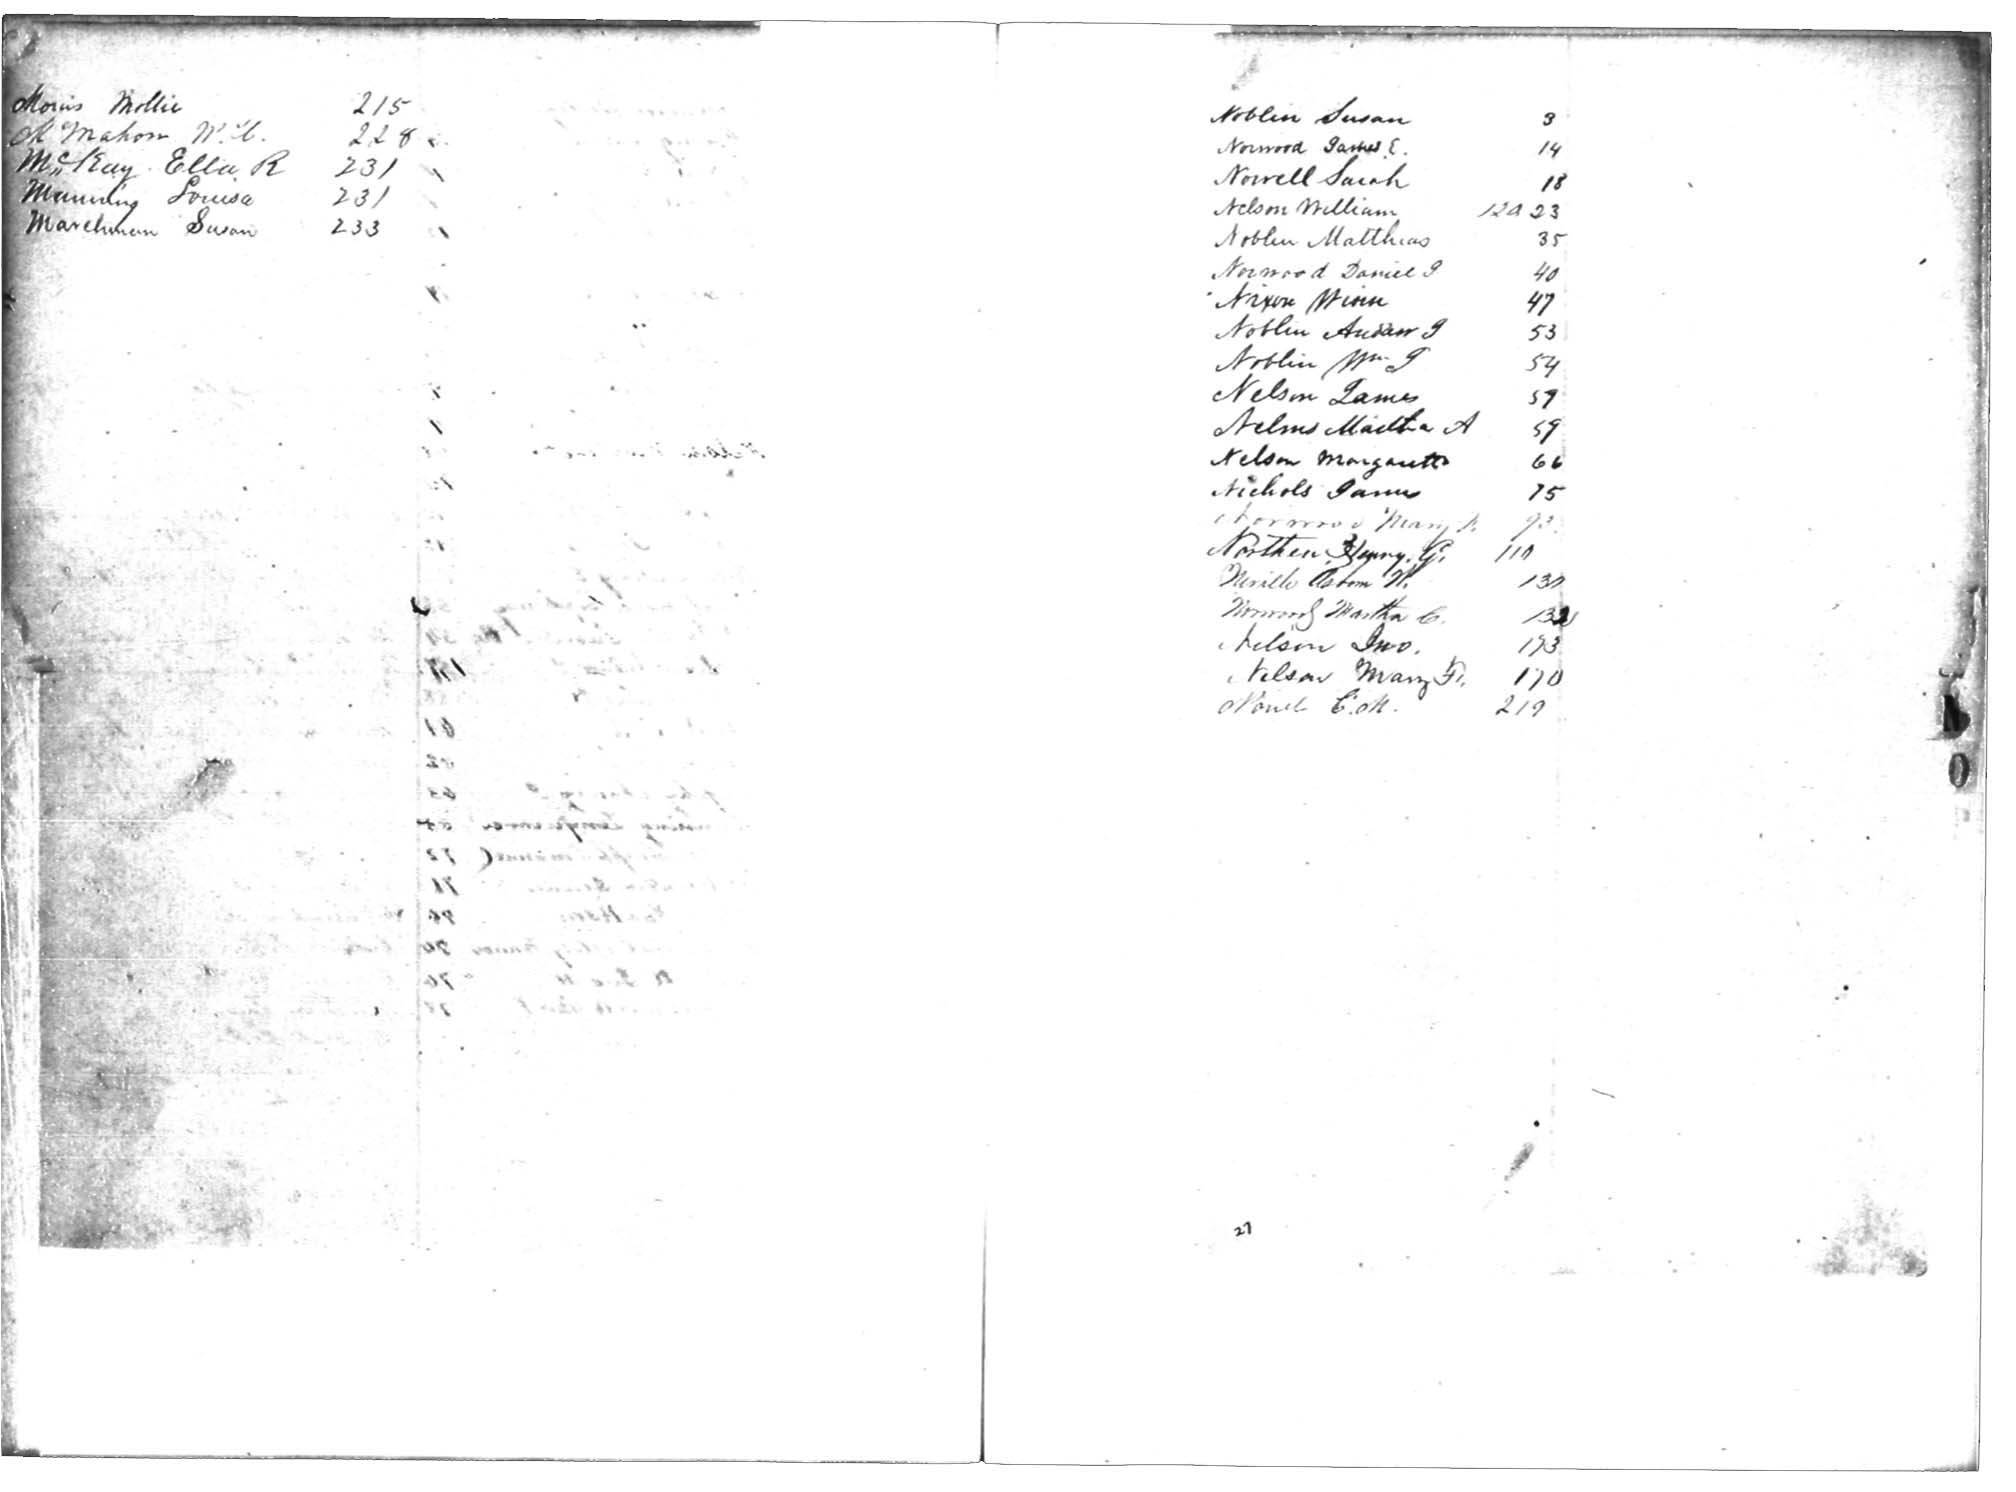 Morris Mollie 215
McMahon W. C. 228
McKay Ella R 231
Manning Louisa 231
Marchman Susan 233
Noblin Susan 3
Norwood James E. 14
Nowell Sarah 18
Nelson William 120 23
Noblin Matthias 35
Norwood Daniel J 40
Nixon Winn 47
Noblin Andrew J 53
Noblin Wm J 54
Nelson James 57
Nelms Martha A 59
Nelson Margarett 66
Nichols James 75
Norwood Mary
Northen Henry G. 110
Neville W. 130
Norwood Martha C.
Nelson Jno. 173
Nelson Mary F. 170
C. M. 219
N
O
27